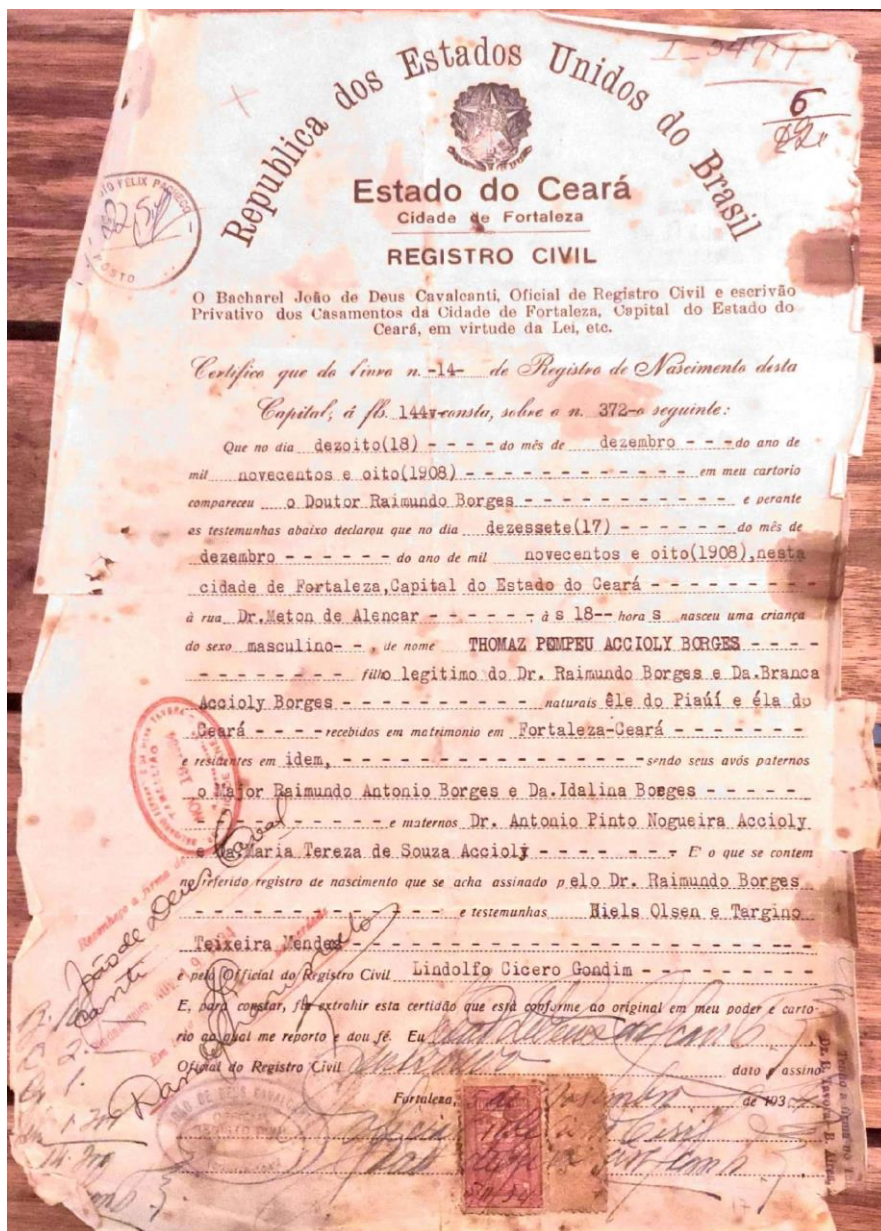 I-547
6
Republica dos Estados Unidos do Brasil
FELIX PACHECO
POSTO
Estado do Ceará
Cidade de Fortaleza
REGISTRO CIVIL
O Bacharel João de Deus Cavalcanti, Oficial de Registro Civil e escrivão
Privativo dos Casamentos da Cidade de Fortaleza, Capital do Estado do
Ceará, em virtude da Lei, etc.
Certifico que do livro n. -14- de Registro de Nascimento desta
Capital, á fls. 144v-consta, sobre o n. 372-o seguinte:
Que no dia dezoito(18) - - - - do mês de dezembro - - -do ano de
mil novecentos e oito(1908) - - - - - - - - - - - - - em meu cartorio
compareceu o Doutor Raimundo Borges - - - - - - - - - - - e perante
as testemunhas abaixo declarou que no dia dezessete(17) - - - - - - do mês de
dezembro - - - - - - do ano de mil novecentos e oito(1908),nesta
cidade de Fortaleza,Capital do Estado do Ceará - - - - - - - - -
à rua Dr.Meton de Alencar - - - - - - , à s 18-- hora s nasceu uma criança
do sexo masculino- - , de nome THOMAZ POMPEU ACCIOLY BORGES - - - -
- - - - - - - - filho legitimo do Dr. Raimundo Borges e Da.Branca
Accioly Borges - - - - - - - - - - naturais êle do Piaúí e éla do
Ceará - - - -recebidos em matrimonio em Fortaleza-Ceará - - - - - - -
e residentes em idem, - - - - - - - - - - - - - - - -sendo seus avós paternos
o Major Raimundo Antonio Borges e Da.Idalina Borges - - - - -
- - - - - - - - - - e maternos Dr. Antonio Pinto Nogueira Accioly
e Da.Maria Tereza de Souza Accioly - - - - - - - - E' o que se contem
no referido registro de nascimento que se acha assinado pelo Dr. Raimundo Borges
- - - - - - - - - - - - - e testemunhas Niels Olsen e Targino
Teixeira Mendes - - - - - - - - - - - - - - - - - - - - - - -
e pelo Official do Registro Civil Lindolfo Cicero Gondim - - - - - - - - -
E, para constar, fiz extrahir esta certidão que está conforme ao original em meu poder e carto-
rio ao qual me reporto e dou fé. Eu
Oficial do Registro Civil dato e assino
Fortaleza, 5 de de 193
Reconheço a firma de
João de Deus Caval
canti
JOÃO DE DEUS CAVALCANTI
REGISTRO CIVIL